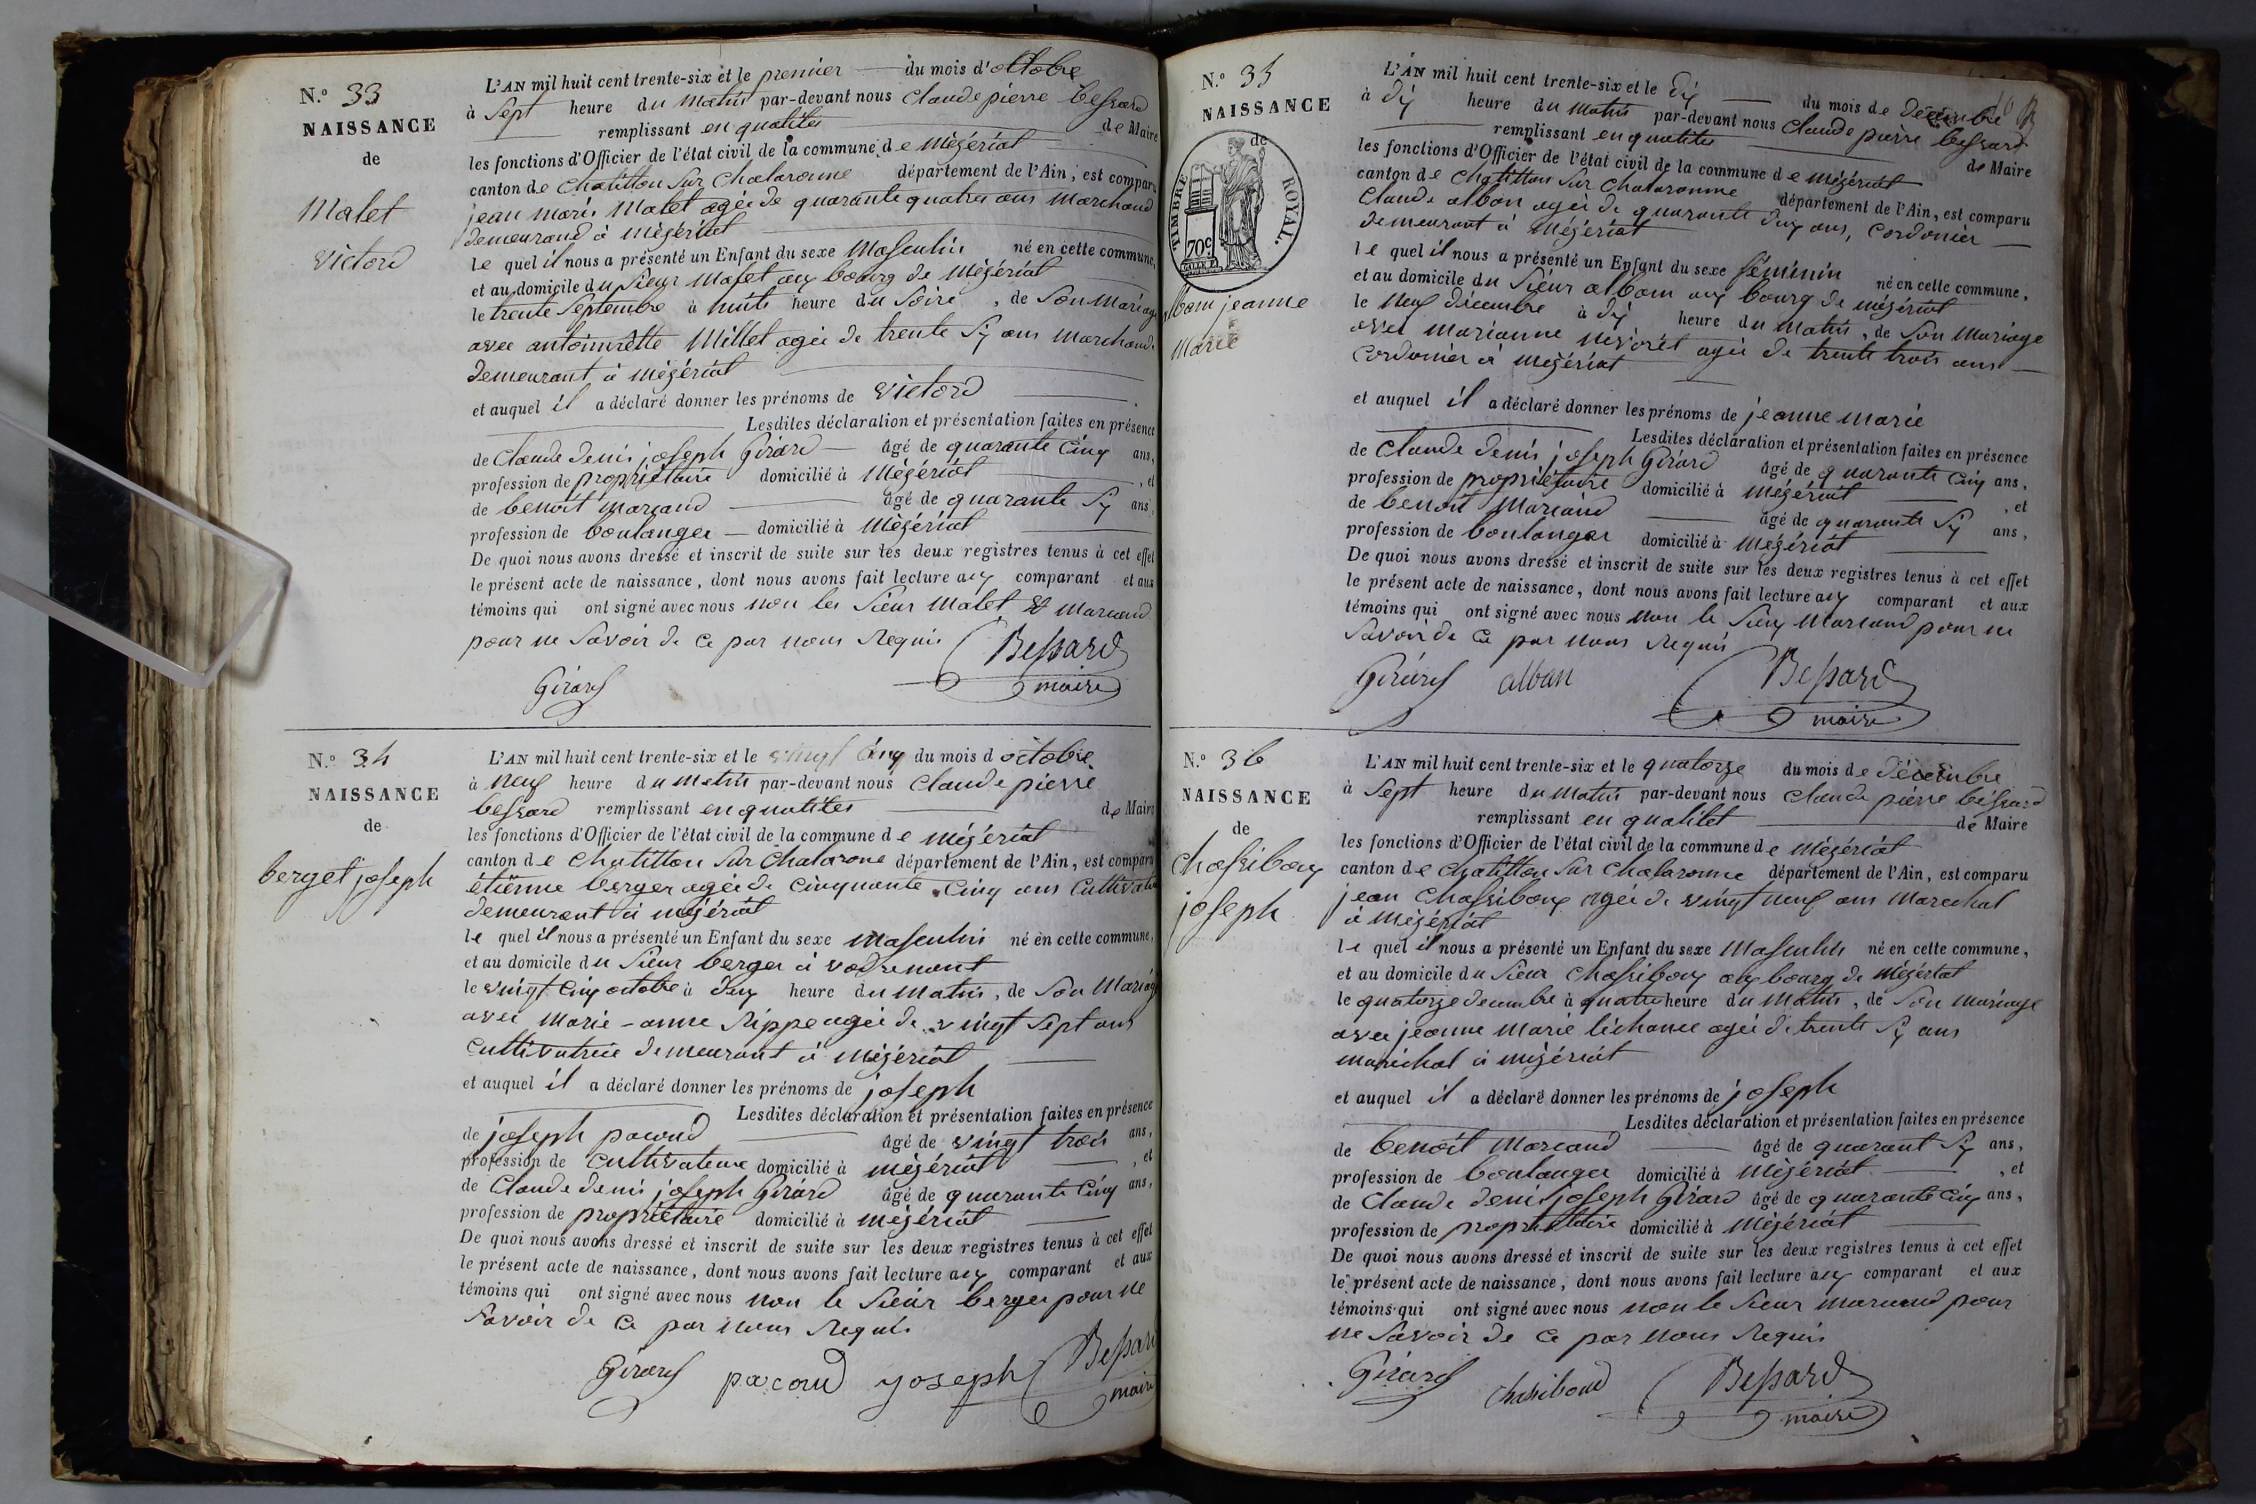 N.º 33
NAISSANCE
de
Malet
victord
L'AN mil huit cent trente-six et le premier du mois d'octobre
à Sept heure du matin par-devant nous Claude pierre bessard
remplissant en qualités de Maire
les fonctions d'Officier de l'état civil de la commune de mézériat
canton de Chatillon Sur Chalaronne département de l'Ain, est comparu
jean marie Malet agée de quarante quatres ans Marchand
demeurand à mézériat
le quel il nous a présenté un Enfant du sexe Masculin né en cette commune,
et au domicile du Sieur Malet aux bourg de mézériat
le trente Septembre à huits heure du Soire, de Son Mariage
avec antoinnette Millet agée de trente Six ans Marchande
demeurant à mézériat
et auquel il a déclaré donner les prénoms de victord
Lesdites déclaration et présentation faites en présence
de Claude denis joseph Girard âgé de quarante Cinq ans,
profession de propriétaire domicilié à Mézériat, et
de benoit marcand âgé de quarante Six ans,
profession de boulanger domicilié à Mézériat
De quoi nous avons dressé et inscrit de suite sur les deux registres tenus à cet effet
le présent acte de naissance, dont nous avons fait lecture aux comparant et aux
témoins qui ont signé avec nous non les Sieur Malet & Marcand
pour ne Savoir de Ce par nous Requis
Girard Bessard
maire
N.º 34
NAISSANCE
de
berget joseph
L'AN mil huit cent trente-six et le vingt Cinq du mois d octobre
à neuf heure du matin par-devant nous Claude pierre
bessard remplissant en qualités de Maire
les fonctions d'Officier de l'état civil de la commune de mézériat
canton de Chatillon Sur Chalarone département de l'Ain, est comparu
étienne berger agée de Cinquante Cinq ans Cultivateur
demeurant à mézériat
le quel il nous a présenté un Enfant du sexe Masculin né en cette commune,
et au domicile du Sieur berger à
le vingt Cinq octobre à deux heure du Matin, de Son Mariage
avec Marie-anne Rippe agée de vingt Sept ans
Cultivatrice demeurant à mézériat
et auquel il a déclaré donner les prénoms de joseph
Lesdites déclaration et présentation faites en présence
de joseph pacoud âgé de vingt trois ans,
profession de Cultivateur domicilié à mézériat, et
de Claude denis joseph Girard âgé de quarante Cinq ans,
profession de propriétaire domicilié à mézériat
De quoi nous avons dressé et inscrit de suite sur les deux registres tenus à cet effet
le présent acte de naissance, dont nous avons fait lecture aux comparant et aux
témoins qui ont signé avec nous non le Sieur berger pour ne
Savoir de Ce par nous Requis
Girard pacoud yoseph Bessard
maire
N.º 35
NAISSANCE
de
TIMBRE ROYAL.
70c
albam jeanne
Marie
L'AN mil huit cent trente-six et le dix du mois de décembre
à dix heure du matin par-devant nous Claude pierre bessard
remplissant en qualités de Maire
les fonctions d'Officier de l'état civil de la commune de mézériat
canton de Chatillon Sur Chalaronne département de l'Ain, est comparu
Claude alban agée de quarante deux ans, Cordonier
demeurant à mézériat
le quel il nous a présenté un Enfant du sexe féminin né en cette commune,
et au domicile du Sieur albam aux bourg de mézériat
le neuf décembre à dix heure du matin, de Son Mariage
avec Marianne nivoret agée de trente trois ans
Cordonier à mézériat
et auquel il a déclaré donner les prénoms de jeanne marie
Lesdites déclaration et présentation faites en présence
de Claude denis joseph Girard âgé de quarante Cinq ans,
profession de propriétaire domicilié à mézériat, et
de benoit Marcand âgé de quarante Six ans,
profession de boulanger domicilié à mézériat
De quoi nous avons dressé et inscrit de suite sur les deux registres tenus à cet effet
le présent acte de naissance, dont nous avons fait lecture aux comparant et aux
témoins qui ont signé avec nous non le Sieur Marcand pour ne
Savoir de Ce par nous Requis
Girard alban Bessard
maire
N.º 36
NAISSANCE
de
Chassiboux
joseph
L'AN mil huit cent trente-six et le quatorze du mois de décembre
à Sept heure du matin par-devant nous Claude pierre béssard
remplissant en qualitet de Maire
les fonctions d'Officier de l'état civil de la commune de mézériat
canton de Chatillon Sur Chalaronne département de l'Ain, est comparu
jean Chassiboux agée de vingt neuf ans Marechal
à mézériat
le quel il nous a présenté un Enfant du sexe Masculin né en cette commune,
et au domicile du Sieur Chassiboux aux bourg de mézériat
le quatorze décembre à quatre heure du Matin, de Son Mariage
avec jeanne Marie léchance agée de trente Six ans
maréchal à mézériat
et auquel il a déclaré donner les prénoms de joseph
Lesdites déclaration et présentation faites en présence
de benoit Marcand âgé de quarant Six ans,
profession de boulanger domicilié à mézériat, et
de Claude denis joseph Girard âgé de quarante Cinq ans,
profession de propriétaire domicilié à mézériat
De quoi nous avons dressé et inscrit de suite sur les deux registres tenus à cet effet
le présent acte de naissance, dont nous avons fait lecture aux comparant et aux
témoins qui ont signé avec nous non le Sieur Marcand pour
ne Savoir de Ce par nous Requis
Girard Chassiboud Bessard
maire